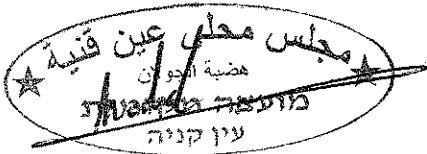 مجلس محلي عين قنية
هضبة الجولان
מועצה
עין קניה